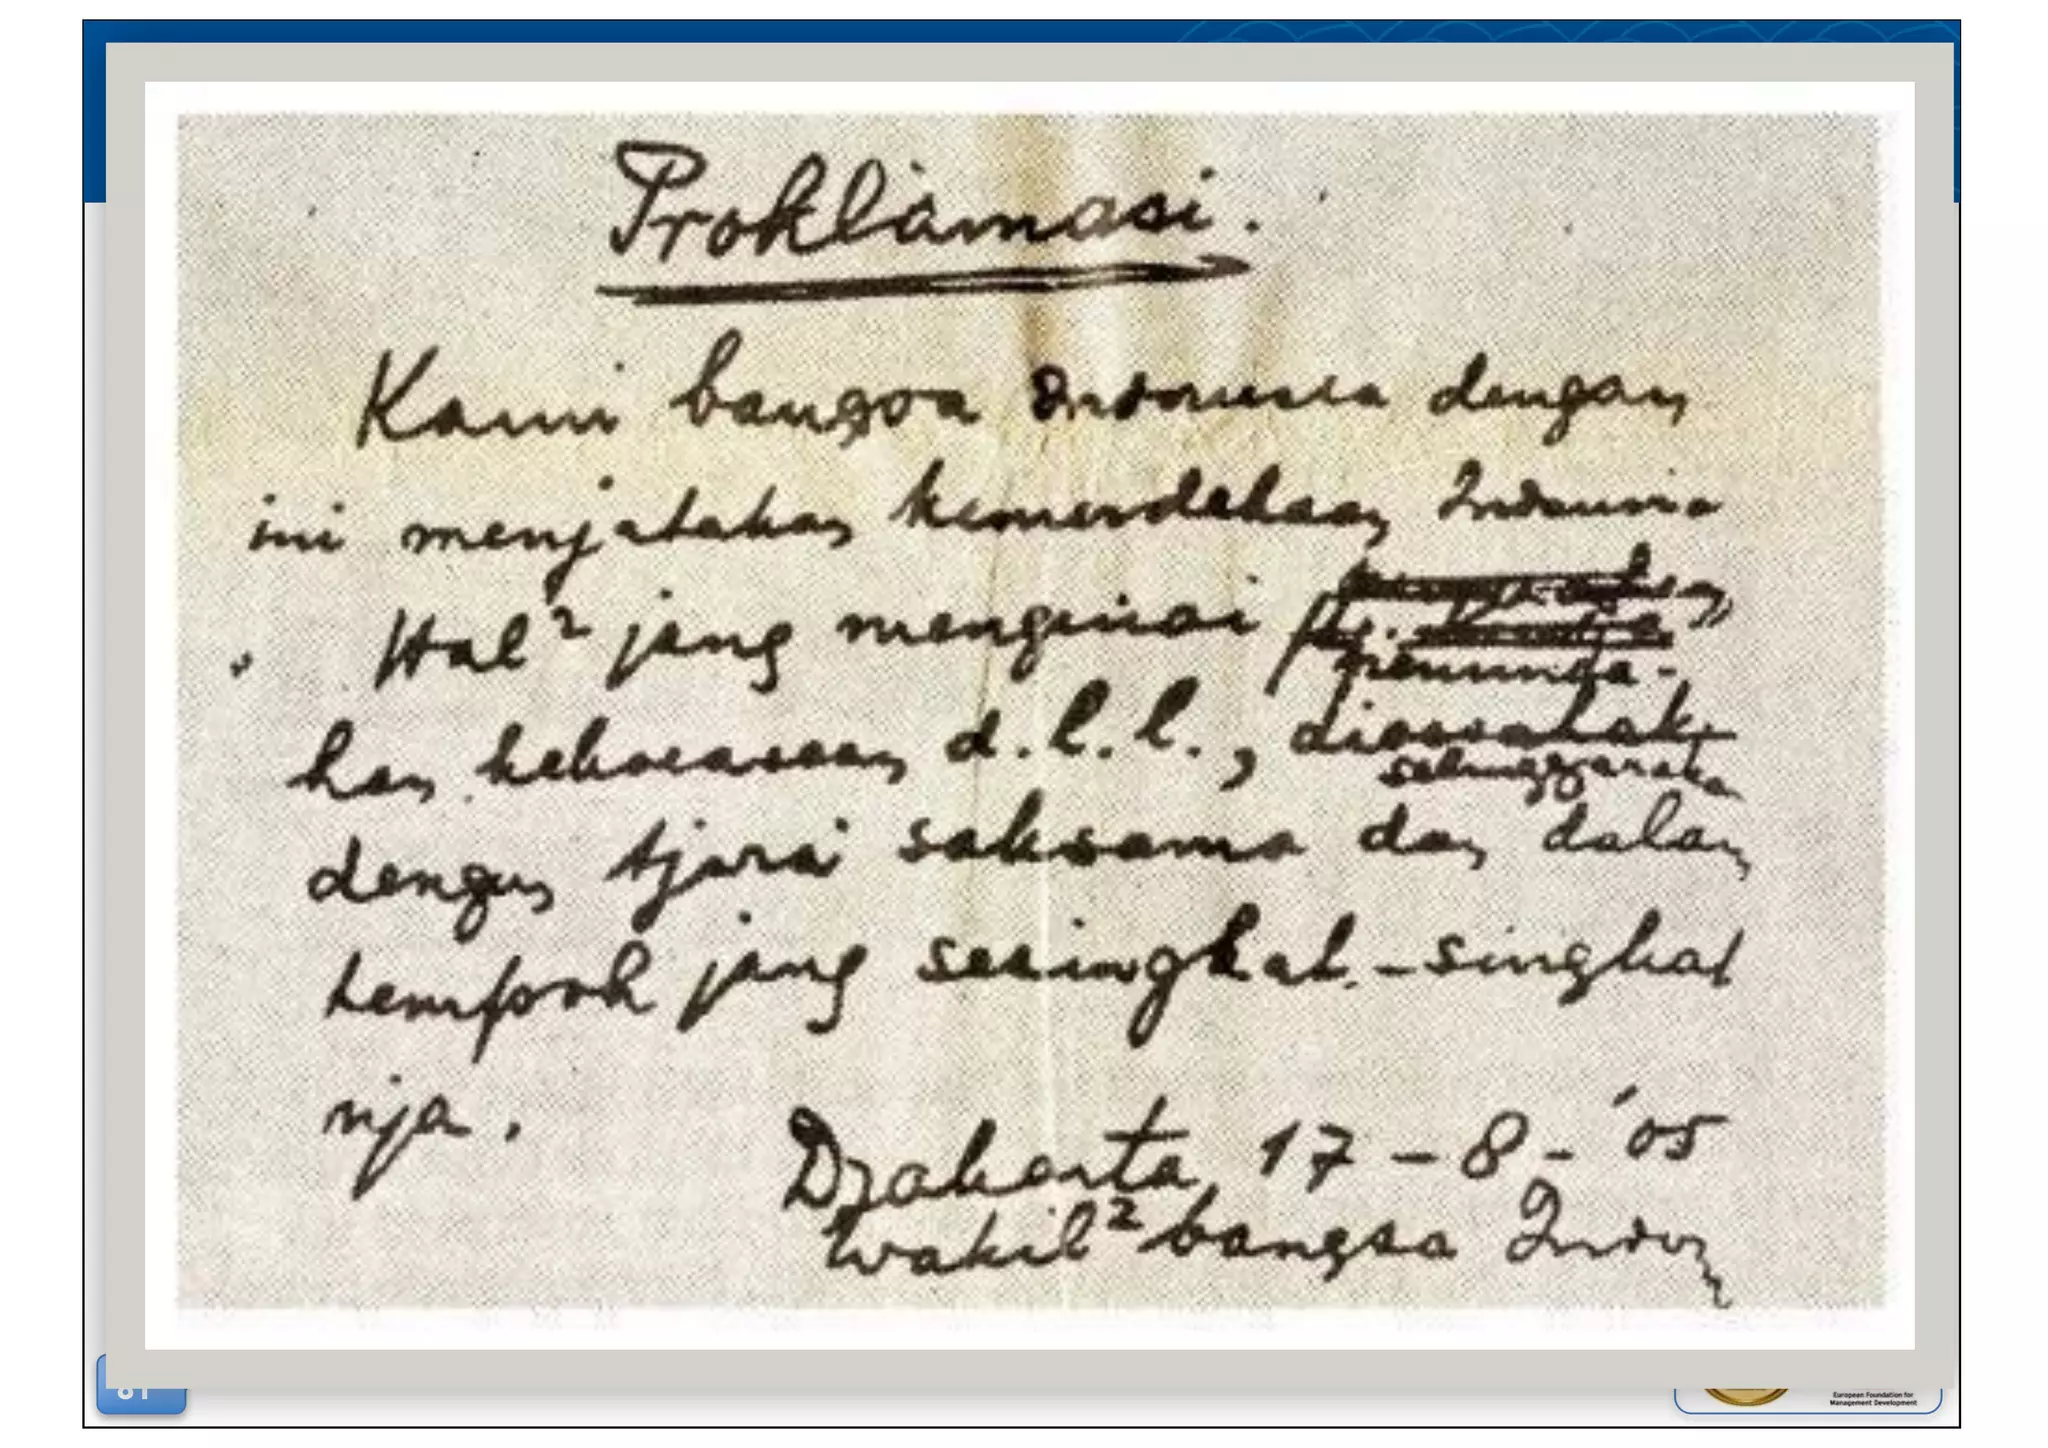 Proklamasi.
Kami bangsa Indonesia dengan
ini menjatakan kemerdekaan Indonesia
Hal² jang mengenai
peminda-
han kekoeasaan d.l.l., dioesahak
selenggarakan
dengan tjara saksama dan dalam
tempoh jang sesingkat-singkat
nja.
Djakarta 17-8-'05
Wakil² bangsa Indon
European Foundation for
Management Development